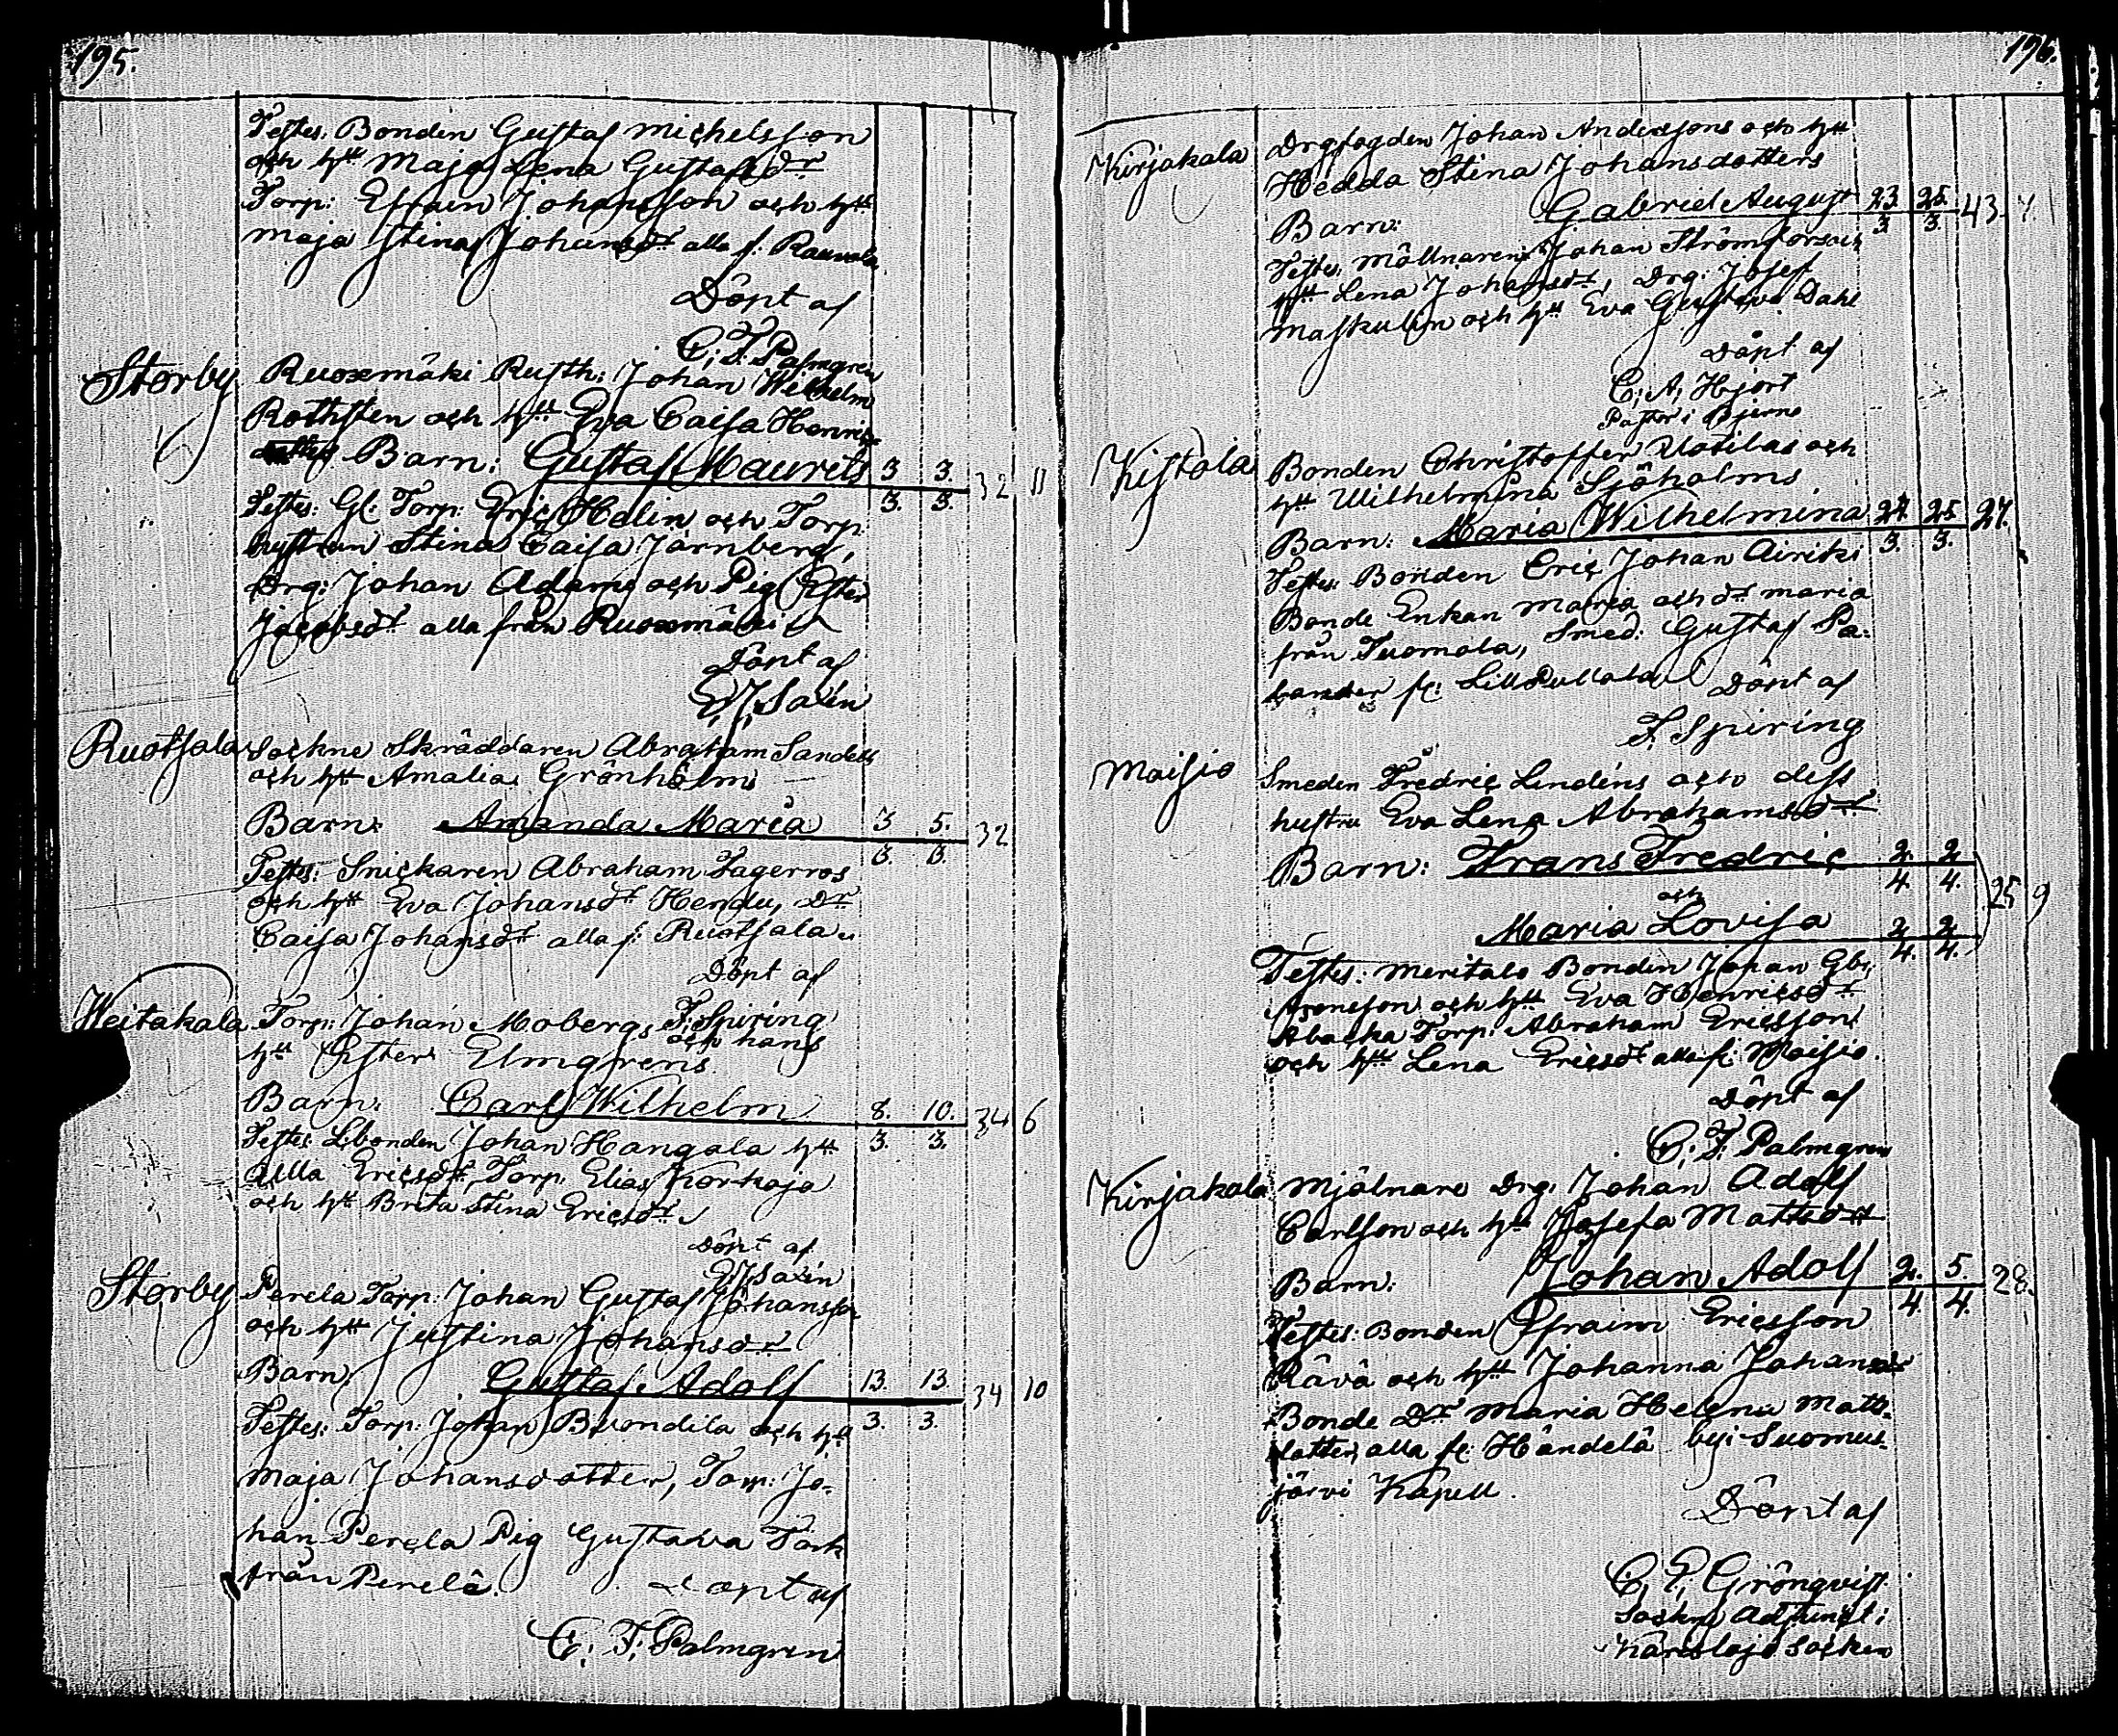 195.
Testes: Bonden Gustaf Michelsson
och h:tt Maja Lena Gustafsd:r
Torp: Efraim Johansson och h:tt
Maja Stina Johansd:r alla f: Rauvola
Döpt af
C; F; Palmgren
Storby Ruoxmäki Rusth: Johan Wilhelm
Rothsten och h:tt Eva Caisa Henrics
dotters Barn: Gustaf Maurits 3 3. 32 11
3. 3.
Testes: Gl: Torp: Eric Helin och Torp:
hustrun Stina Caisa Järnberg,
Drg: Johan Adam och Pig Ester
Jacobsd:r alla från Ruoxmäki
Döpt af
Salin
Ruotsala Sockne Skräddaren Abraham Sandells
och h:tt Amalia Grönholms
Barn: Amanda Maria 3 5. 32
3. 3.
Testes: Snickaren Abraham Fagerros
och h:tt Eva Johansd:r Hendu, D:r
Caisa Johansd:r alla f: Ruotsala
Döpt af
F; Spiring
Weitakala Torp: Johan Mobergs och hans
h:tt Esters Elmgrens
Barn: Carl Wilhelm 8. 10. 34 6
3. 3.
Testes: L:bonden Johan Hangala h:tt
Ulla Ericsd:r, Torp: Elias Korkoja
och h:tt Brita Stina Ericsd:r
Döpt af
Salin
Storby Perela Torp: Johan Gustaf Johansson
och h:tt Justina Johansd:r
Barn Gustaf Adolf 13. 13. 34 10
3. 3.
Testes: Torp: Johan och h:tt
Maja Johansdotter, Torp: Jo-
han Perela Pig Gustava
från Perelä.
Döpt af
C; F; Palmgren
196.
Kirjakala Drgfogden Johan Anderssons och h:tt
Hedda Stina Johansdotters
Barn: Gabriel August 23. 25. 43.
3. 3.
Testes: Möllnaren Johan Strömfors och
h:tt Lena Johansd:r, Drg: Josef
Maskulin och h:tt Eva Gustava Dahl
Döpt af
C; A; Hjort
Pastor i Bjerno
Kistola Bonden Christoffer Uotilas och
h:tt Wilhelmina Sjöholms
Barn: Maria Wilhelmina 24 25 27.
3. 3.
Testes: Bonden Eric Johan Airiki
Bonde Enkan Maria och d:r Maria
från Tuomola, Smed: Gustaf
f: Döpt af
F; Spiring
Maisio Smeden Fredric Lindéns och dess
hustru Eva Lena Abrahamsd:r
Barn: Frans Fredric 2. 2
4. 4.
och 25 9
Maria Lovisa 2. 2.
4. 4.
Testes: Meritalo Bonden Johan Gb:
Aronsson och h:tt Eva Henricsd:r
Abacka Torp: Abraham Ericsson
och h:tt Lena Ericsd:r alla f: Maisio.
Döpt af
C; F; Palmgren
Kirjakala Mjölnare Drg: Johan Adolf
Carlsson och h:tt Josefa Mattsd:r
Barn: Johan Adolf 2. 5 28.
4. 4.
Testes: Bonden Efraim Ericsson
Rävä och h:tt Johanna Johansd:r
Bonde D:r Maria Helena Matts-
dotter, alla f: Händelä by i Suomus-
järvi Kapell.
Döpt af
C; E; Grönqvist
Sockne Adjunct i
Karislojo Socken